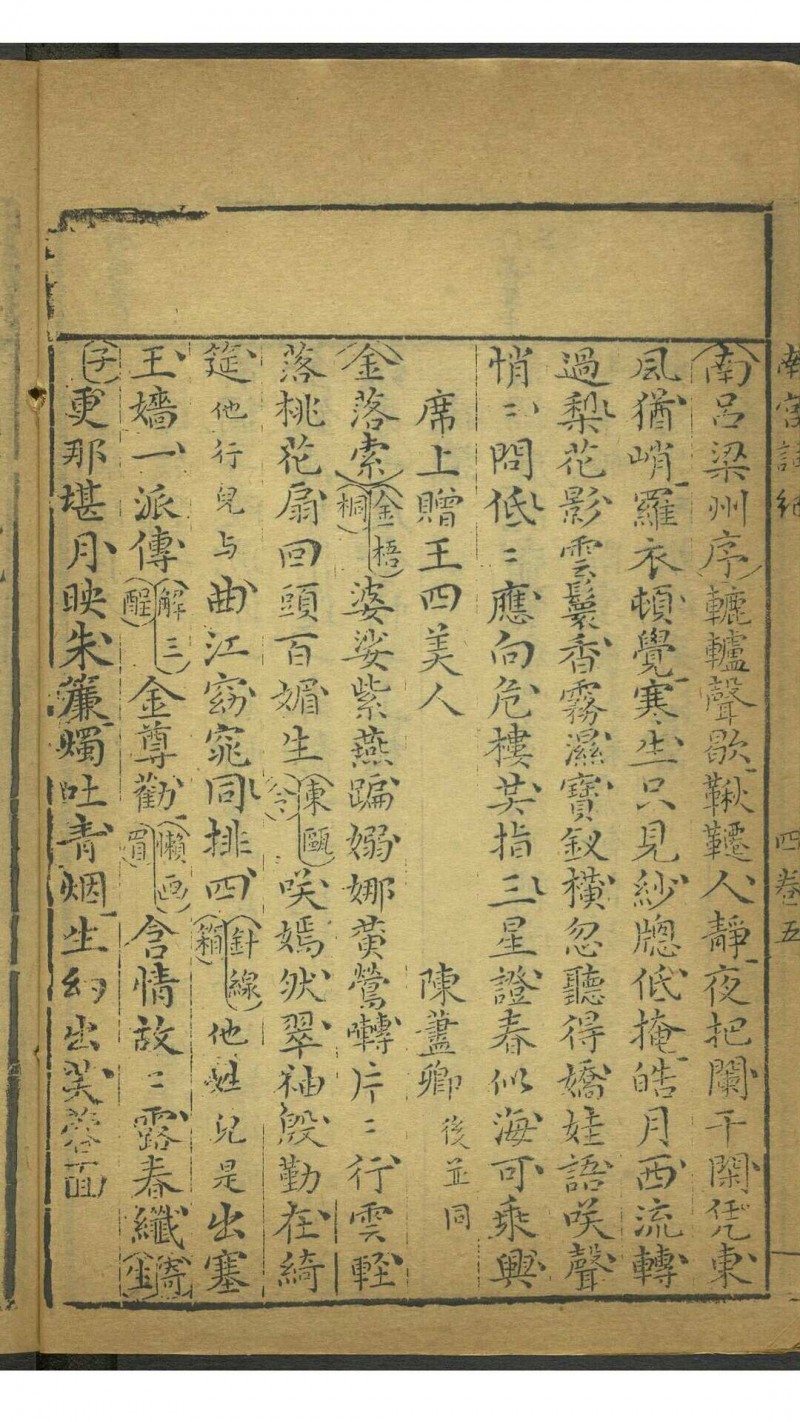 南宮詞紀 四卷五
南呂梁州序轆轤聲歇鞦韆人靜夜把闌干閑凭東
風猶峭羅衣頓覺寒生只見紗牕低掩皓月西流轉
過梨花影雲鬟香霧濕寶釵橫忽聽得嬌娃語咲聲
悄〻問低〻應向危樓共指三星證春似海可乘興
席上贈王四美人 陳藎卿後並同
金落索金梧桐婆娑紫燕蹁嫋娜黃鶯囀片〻行雲輕
落桃花扇回頭百媚生東甌令咲嫣然翠袖殷勤在綺
筵他行兒与曲江窈窕同排四針線箱他姓兒是出塞
王嬙一派傳解三酲金尊勸懶画眉含情故〻露春纖寄生
子更那堪月映朱簾燭吐青烟生幻出芙蓉面